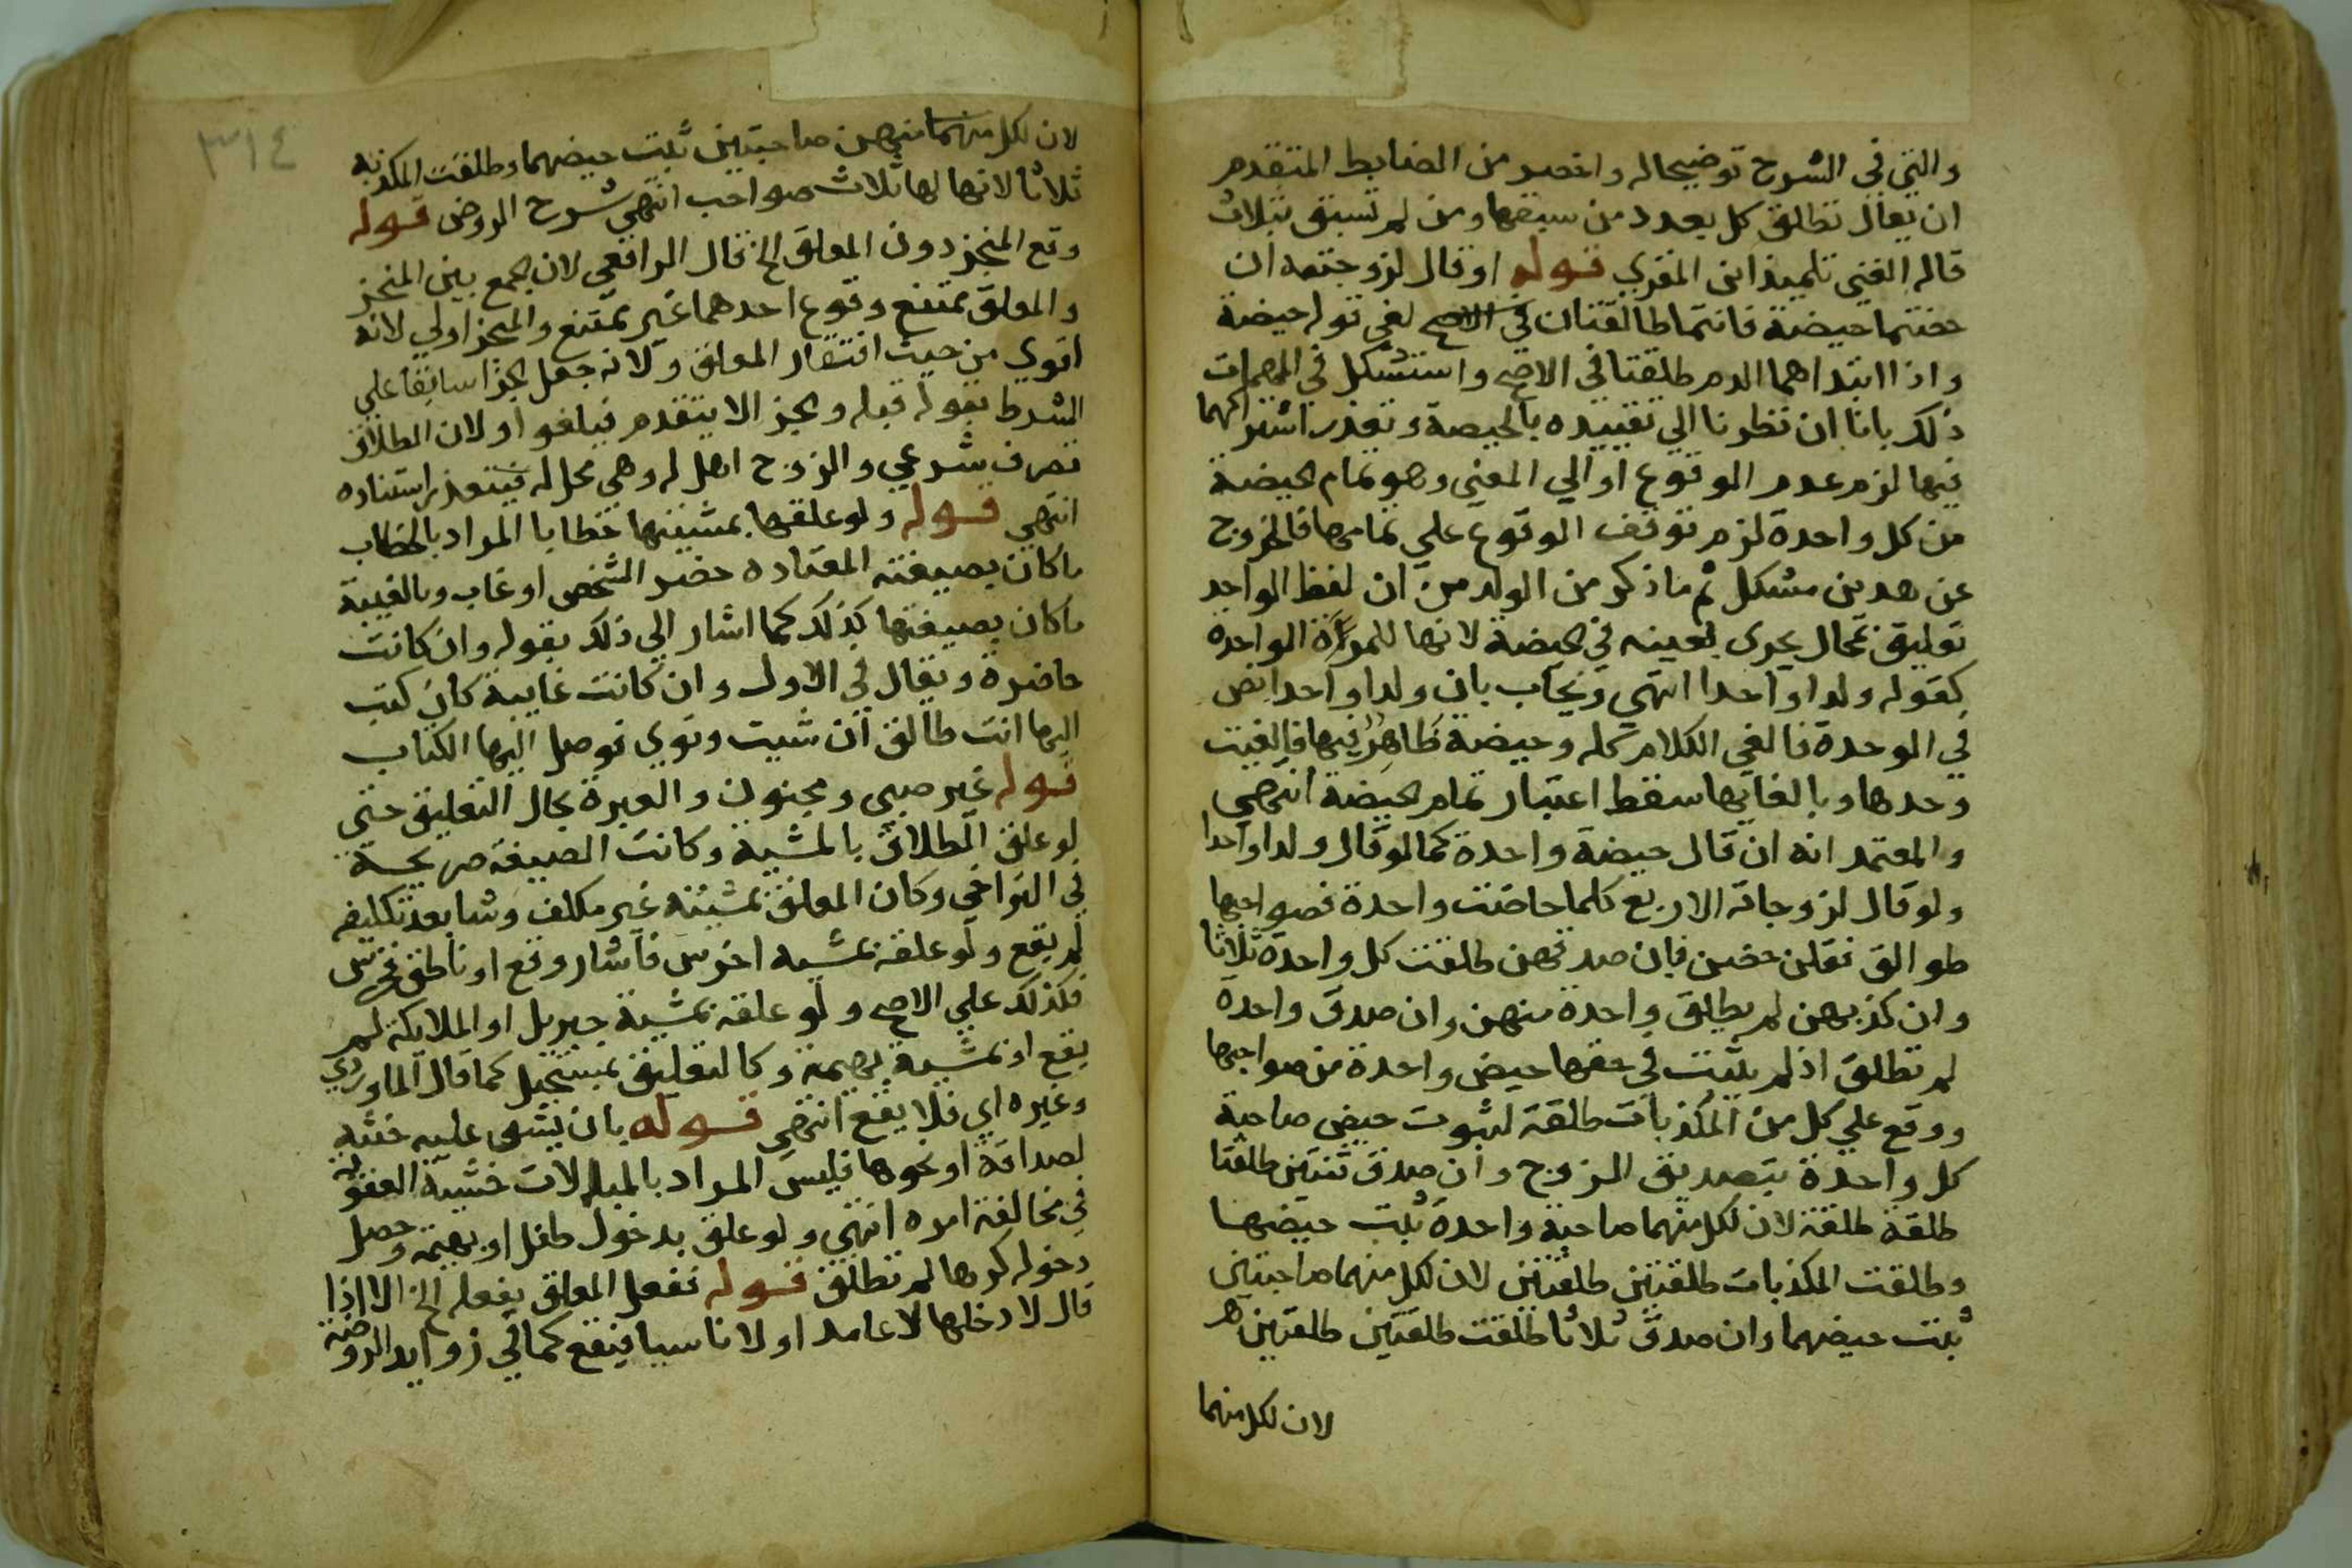 والتي في الشرح توضيحا له واخصر من الضابط المتقدم
ان يقال تطلق كل بعدد من سبقها ومن لم تسبق بثلاث
قاله الفتى تلميذ ابن المقري قوله او قال لزوجتيه ان
حضتما حيضة فانتما طالقتان في الاصح لغي قوله حيضة
واذا ابتداهما الدم طلقتا في الاصح واستشكل في المهمات
ذلك بانا ان نظرنا الي تقييده بالحيضة وتعذر اشتراكهما
فيها لزم عدم الوقوع او الي المعني وهو تمام الحيضة
من كل واحدة لزم توقف الوقوع علي تمامها فالخروج
عن هدين مشكل ثم ما ذكر من الولد من ان لفظ الواحد
تعليق بمحال يجري بعينه في الحيضة لانها للمراة الواحدة
كقوله ولدا واحدا انتهي ويجاب بان ولدا واحدا نص
في الوحدة فالغي الكلام كله وحيضة ظاهر فيها فالغيت
وحدها وبالغايها سقط اعتبار تمام الحيضة انتهي
والمعتمد انه ان قال حيضة واحدة كما لو قال ولدا واحدا
ولو قال لزوجاته الاربع كلما حاضت واحدة فصواحبها
طوالق فقلن حضن فان صدقهن طلقت كل واحدة ثلاثا
وان كذبهن لم يطلق واحدة منهن وان صدق واحدة
لم تطلق اذ لم يثبت في حقها حيض واحدة من صواحبها
ووقع علي كل من المكذبات طلقة لثبوت حيض صاحبة
كل واحدة بتصديق الزوج وان صدق ثنتين طلقتا
طلقة طلقة لان لكل منهما صاحبة واحدة ثبت حيضها
وطلقت المكذبات طلقتين طلقتين لان لكل منهما صاحبتين
ثبت حيضهما وان صدق ثلاثا طلقت طلقتين طلقتين
لان لكل منهما
٣١٤
لان لكل منهما منهن صاحبتين ثبت حيضهما وطلقت المكذبة
ثلاثا لانها لها ثلاث صواحب انتهي شرح الروض قوله
وقع المنجز دون المعلق الخ قال الرافعي لان الجمع بين المنجز
والمعلق ممتنع وقوع احدهما غير ممتنع والمنجز اولي لانه
اقوي من حيث افتقار المعلق ولانه جعل الجزا سابقا علي
الشرط بقوله قبله والجزا لا يتقدم فيلغو او لان الطلاق
تصرف شرعي والزوج اهل له وهي محل له فيتعذر استناده
انتهي قوله ولو علقها بمشيتها خطابا المراد بالخطاب
ما كان بصيغته المعتاده حضر الشخص او غاب وبالغيبة
ما كان بصيغتها كذلك كما اشار الي ذلك بقوله وان كانت
حاضرة ويقال في الاول وان كانت غايبة كان كتب
اليها انت طالق ان شيت ونوي فوصل اليها الكتاب
قوله غير صبي ومجنون والعبرة بحال التعليق حتي
لو علق الطلاق بالمشية وكانت الصيغة صريحة
في التراخي وكان المعلق بمشيته غير مكلف وشا بعد تكليفه
لم يقع ولو علقه بمشية اخرس فاشار وقع او ناطق فخرس
فكذلك علي الاصح ولو علقه بمشية جبريل او الملايكة لم
يقع او بمشية بهيمة وكالتعليق بمستحيل كما قال الماوردي
وغيره اي فلا يقع انتهي قوله بان يشق عليه حنثه
لصداقة او نحوها فليس المراد بالمبالات خشية العقوبة
في مخالفة امره انتهي ولو علق بدخول طفل او بهيمة وحصل
دخوله كرها لم تطلق قوله ففعل المعلق بفعله الخ الا اذا
قال لا دخلها لا عامد او لا ناسيا فيقع كما في زوايد الروضة